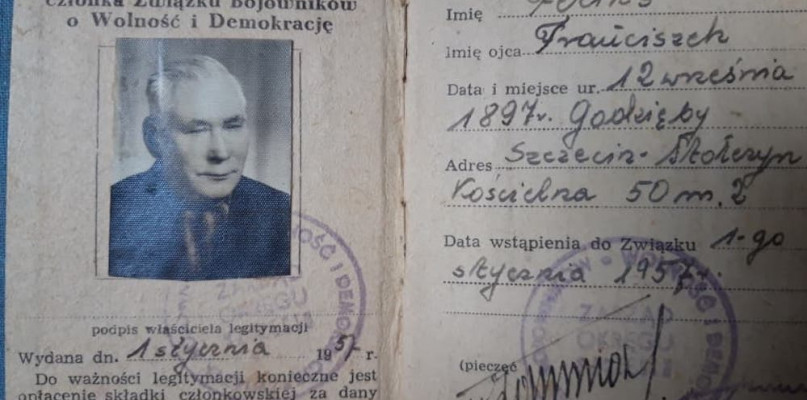 członka Związku Bojowników
o Wolność i Demokrację
podpis właściciela legitymacji
Wydana dn. 1 stycznia 1957 r.
Do ważności legitymacji konieczne jest
opłacenie składki członkowskiej za dany
Imię
Imię ojca Franciszek
Data i miejsce ur. 12 września
1897r. Godzięby
Adres Szczecin-Stołczyn
Kościelna 50 m. 2
Data wstąpienia do Związku 1-go
stycznia 1957r.
(pieczęć
ZARZĄD
OKRĘGU
WOLNOŚĆ I DEMOK